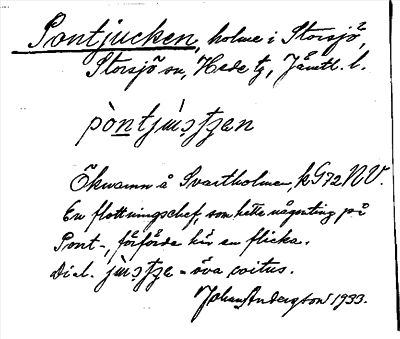 Pontjucken, holme i Storsjö,
Storsjö sn, Hede tg, Jämtl. l.
pòntjùʂtʂen
Öknamn å Svartholmen, kG72NV.
En flottningschef, som hette någonting på
Pont-, förförde här en flicka.
Dial. jùʂtʂe = öva coitus.
Johan Andersson 1933.